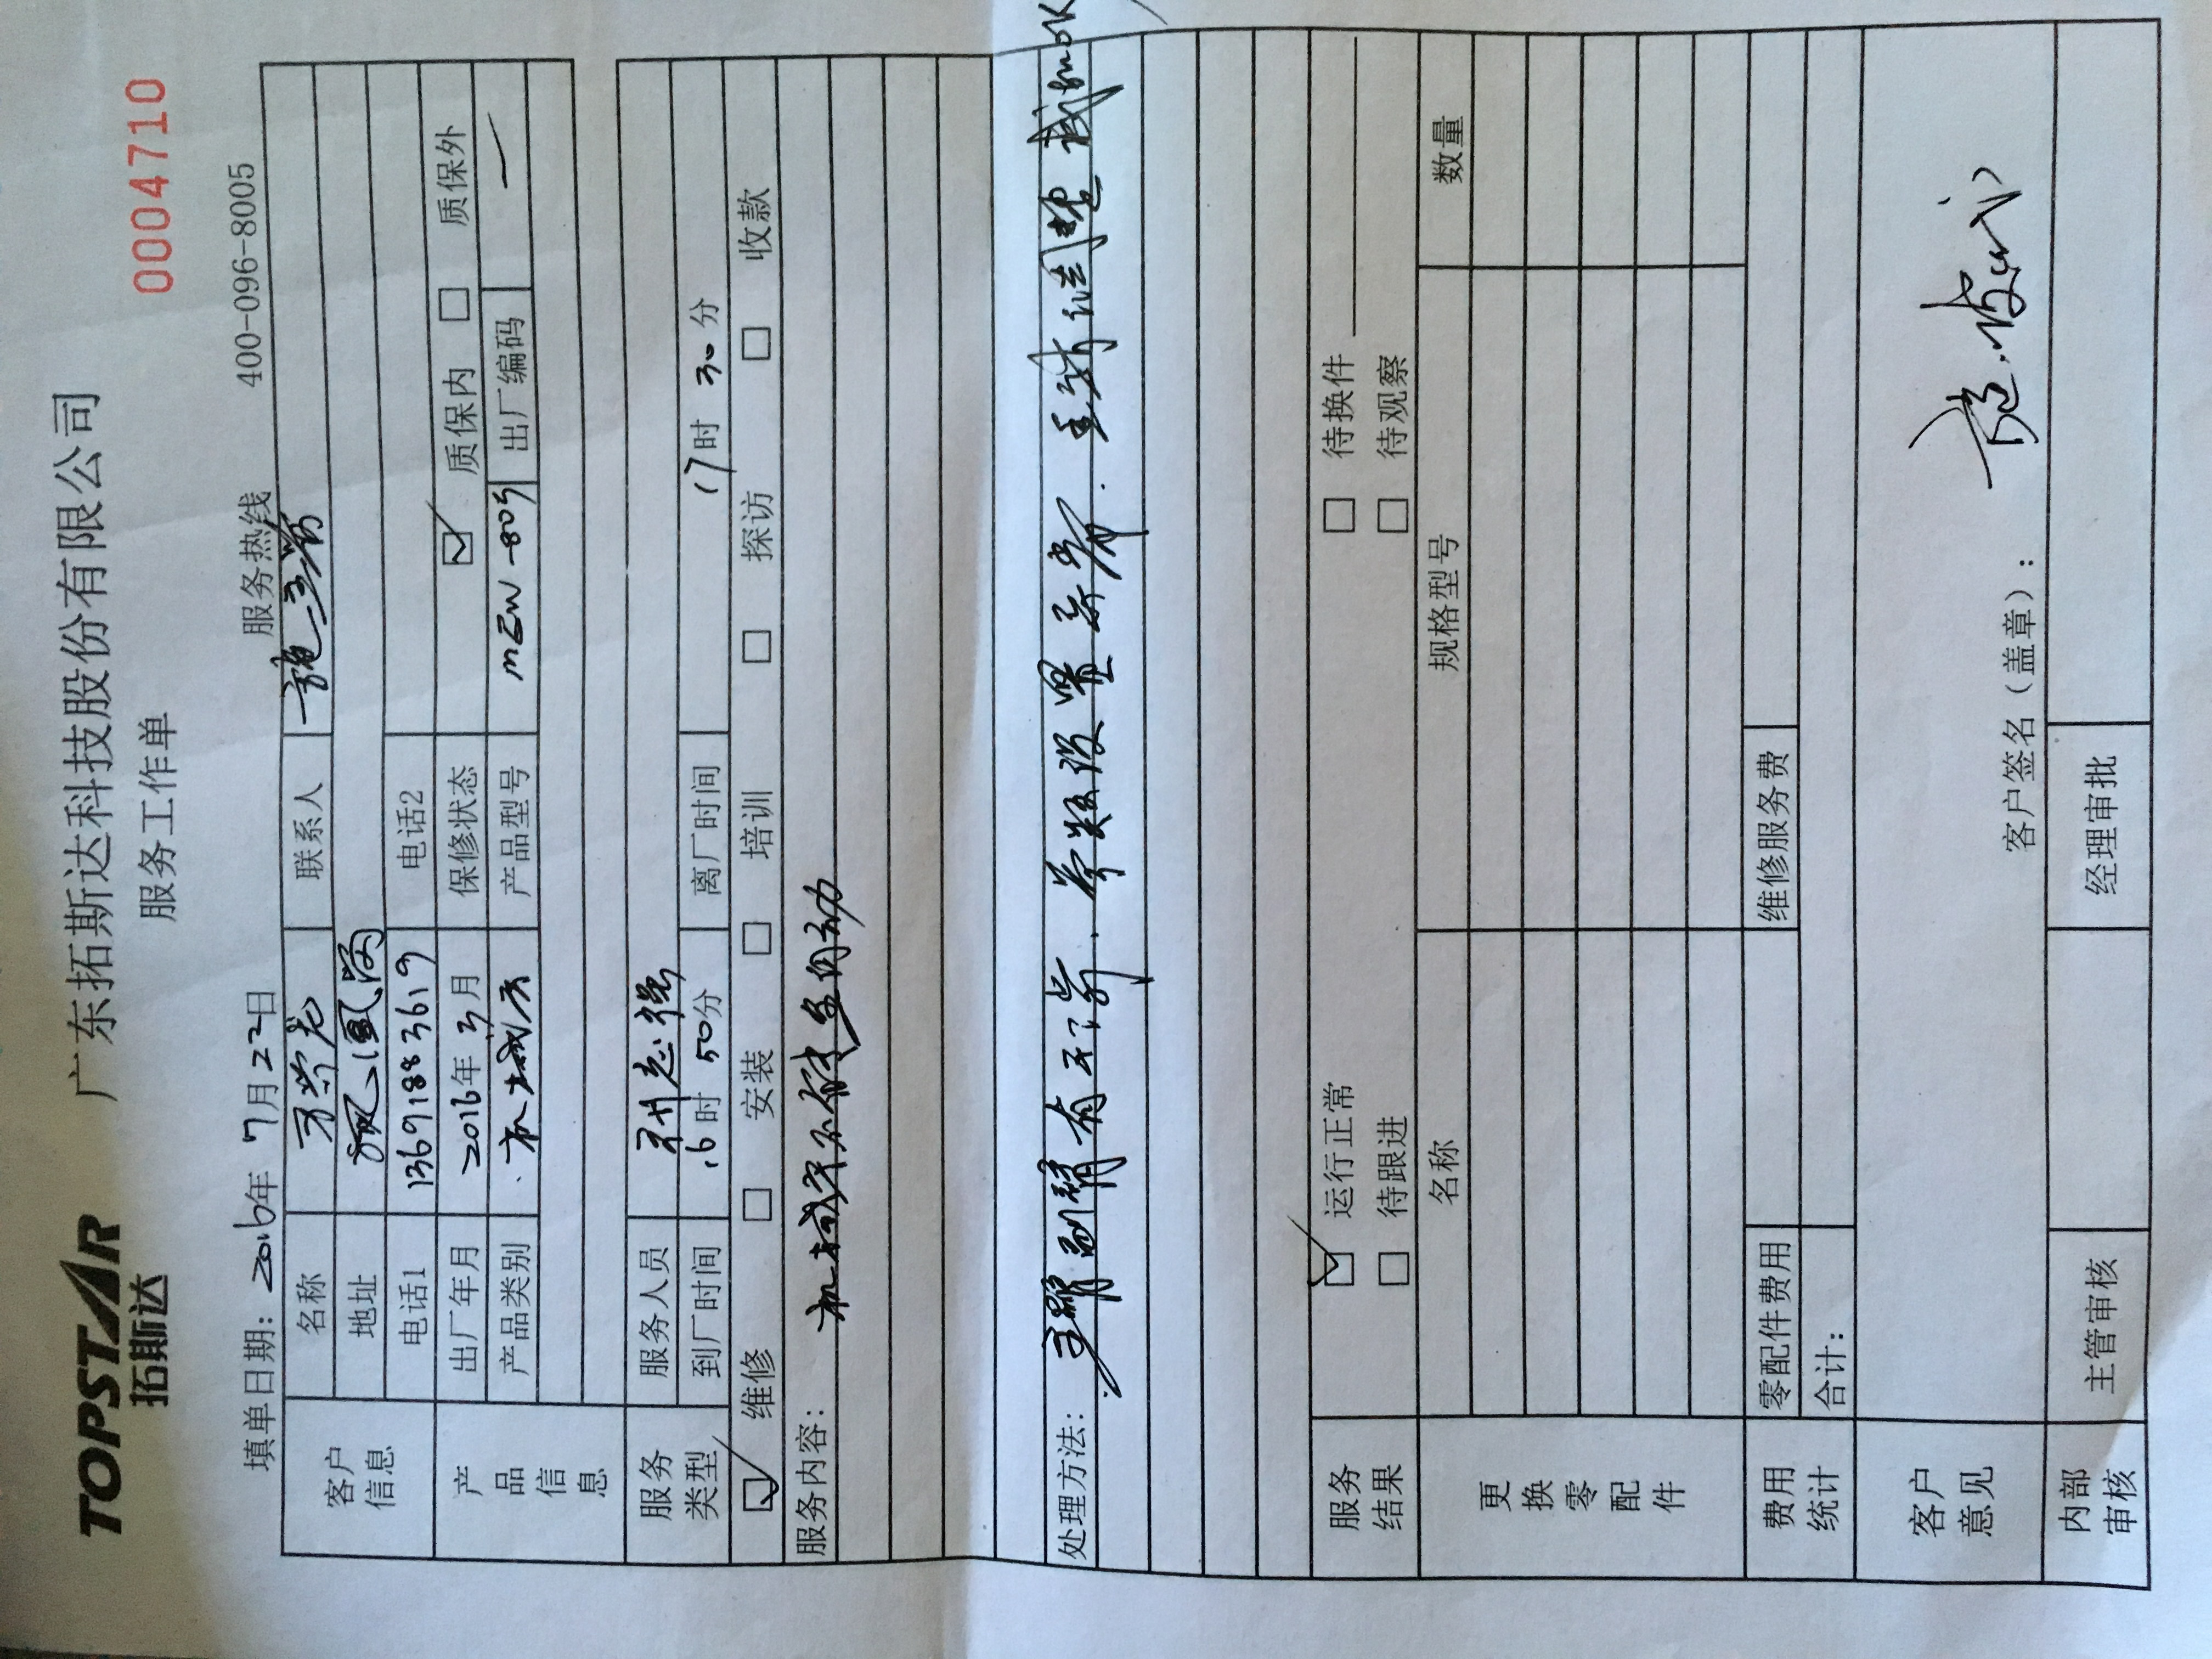 TOPSTAR
拓斯达
广东拓斯达科技股份有限公司
服务工作单
0004710
填单日期: 2016年 7月22日 服务热线 400-096-8005
客户信息
名称 联系人 施
地址
电话1 13691883619 电话2
产品信息
出厂年月 2016年3月 保修状态 ☑ 质保内 □ 质保外
产品类别 机械手 产品型号 出厂编码 —
服务类型
服务人员
到厂时间 16时50分 离厂时间 17时30分
☑ 维修 □ 安装 □ 培训 □ 探访 □ 收款
服务内容: 机械手不能自动
处理方法: 副臂有干涉. 参数设置异常. 重新 OK
服务结果
☑ 运行正常 □ 待换件
□ 待跟进 □ 待观察
更换零配件
名称 规格型号 数量
费用统计
零配件费用 维修服务费
合计:
客户意见
客户签名(盖章): 施
内部审核
主管审核 经理审批